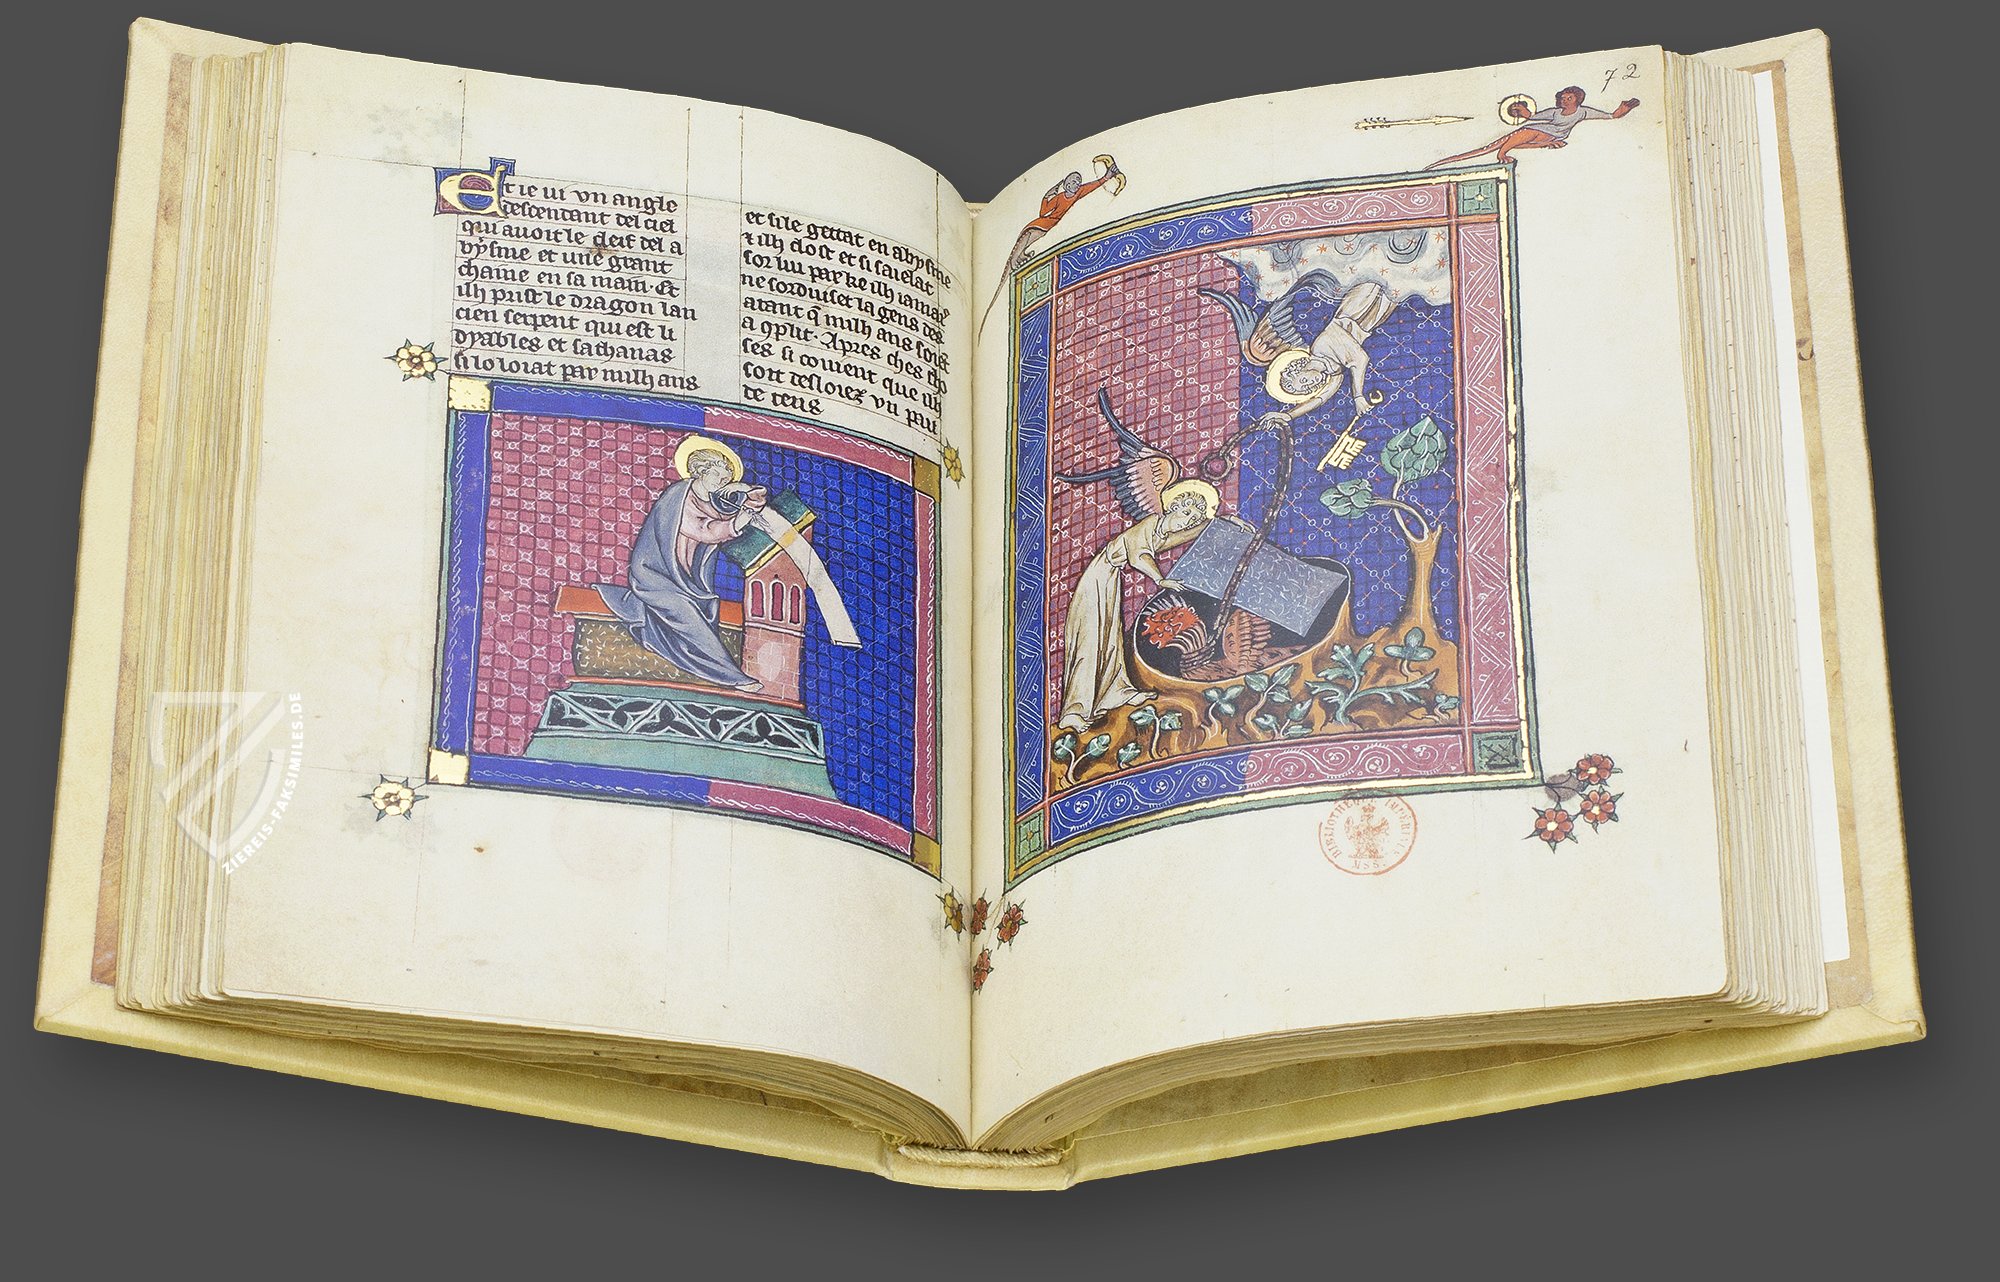 Et ie ui vn angle
descendant del ciel
qui auoit le cleif del a
bysme et une grant
chaine en sa main. Et
ilh prist le dragon lan
cien serpent qui est li
dyables et sathanas
si lo loiat par milh ans
et si le gettat en abysme
ilh clost et si saielat
sor lui par ke ilh iamais
ne sorduiset la gens des
atant q milh ans soiet
a gplit. Apres ches cho
ses si couient que ilh
soit desloiez vn pau
de tens
72
BIBLIOTHEC IMPERIALE
MSS.
ZIEREIS-FAKSIMILES.DE